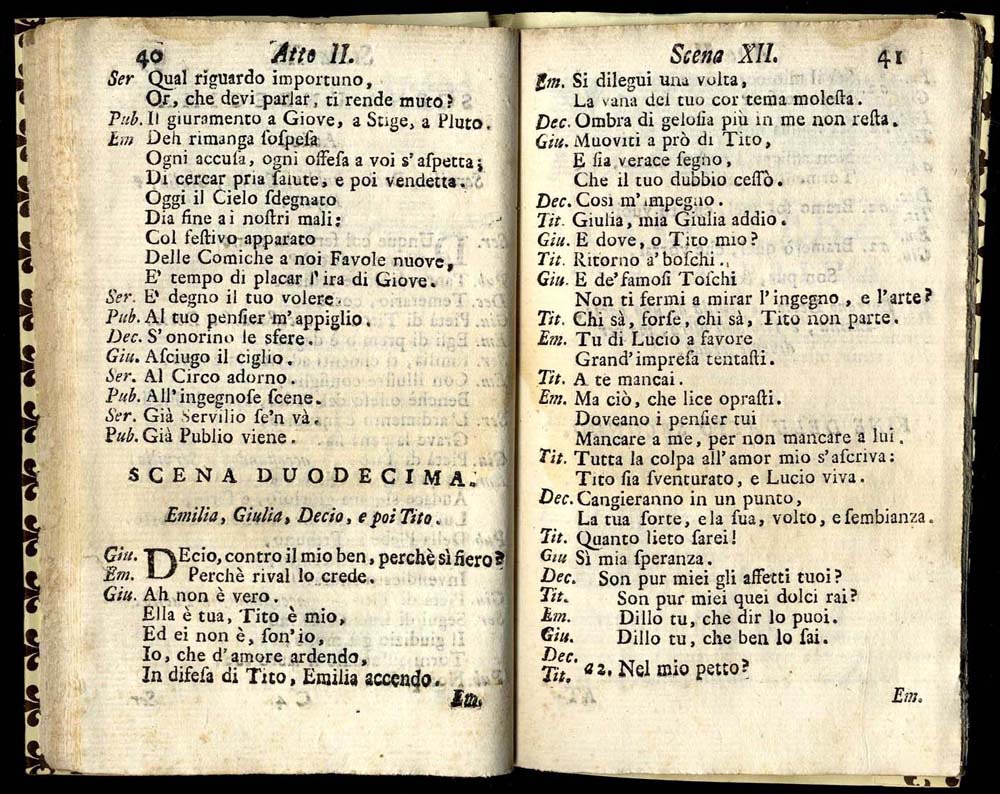 40 Atto II.
Ser Qual riguardo importuno,
Or, che devi parlar, ti rende muto?
Pub. Il giuramento a Giove, a Stige, a Pluto.
Em Deh rimanga ſoſpeſa
Ogni accuſa, ogni offeſa a voi s'aſpetta;
Di cercar pria ſalute, e poi vendetta.
Oggi il Cielo ſdegnato
Dia fine ai noſtri mali:
Col feſtivo apparato
Delle Comiche a noi Favole nuove,
E' tempo di placar l'ira di Giove.
Ser. E' degno il tuo volere.
Pub. Al tuo penſier m'appiglio.
Dec. S'onorino le sfere.
Giu. Aſciugo il ciglio.
Ser. Al Circo adorno.
Pub. All'ingegnoſe ſcene.
Ser. Già Servilio ſe'n và.
Pub. Già Publio viene.
SCENA DUODECIMA.
Emilia, Giulia, Decio, e poi Tito.
Giu. DEcio, contro il mio ben, perchè sì fiero?
Em. Perchè rival lo crede.
Giu. Ah non è vero.
Ella è tua, Tito è mio,
Ed ei non è, ſon'io,
Io, che d'amore ardendo,
In difeſa di Tito, Emilia accendo.
Em.
Scena XII. 41
Em. Si dilegui una volta,
La vana del tuo cor tema moleſta.
Dec. Ombra di geloſia più in me non reſta.
Giu. Muoviti a prò di Tito,
E ſia verace ſegno,
Che il tuo dubbio ceſſò.
Dec. Così m'impegno.
Tit. Giulia, mia Giulia addio.
Giu. E dove, o Tito mio?
Tit. Ritorno a' boſchi.
Giu. E de' famoſi Toſchi
Non ti fermi a mirar l'ingegno, e l'arte?
Tit. Chi sà, forſe, chi sà, Tito non parte.
Em. Tu di Lucio a favore
Grand'impreſa tentaſti.
Tit. A te mancai.
Em. Ma ciò, che lice opraſti.
Doveano i penſier tui
Mancare a me, per non mancare a lui.
Tit. Tutta la colpa all'amor mio s'aſcriva:
Tito ſia ſventurato, e Lucio viva.
Dec. Cangieranno in un punto,
La tua ſorte, e la ſua, volto, e ſembianza.
Tit. Quanto lieto ſarei!
Giu Sì mia ſperanza.
Dec. Son pur miei gli affetti tuoi?
Tit. Son pur miei quei dolci rai?
Em. Dillo tu, che dir lo puoi.
Giu. Dillo tu, che ben lo ſai.
Dec.
Tit. a 2. Nel mio petto?
Em.